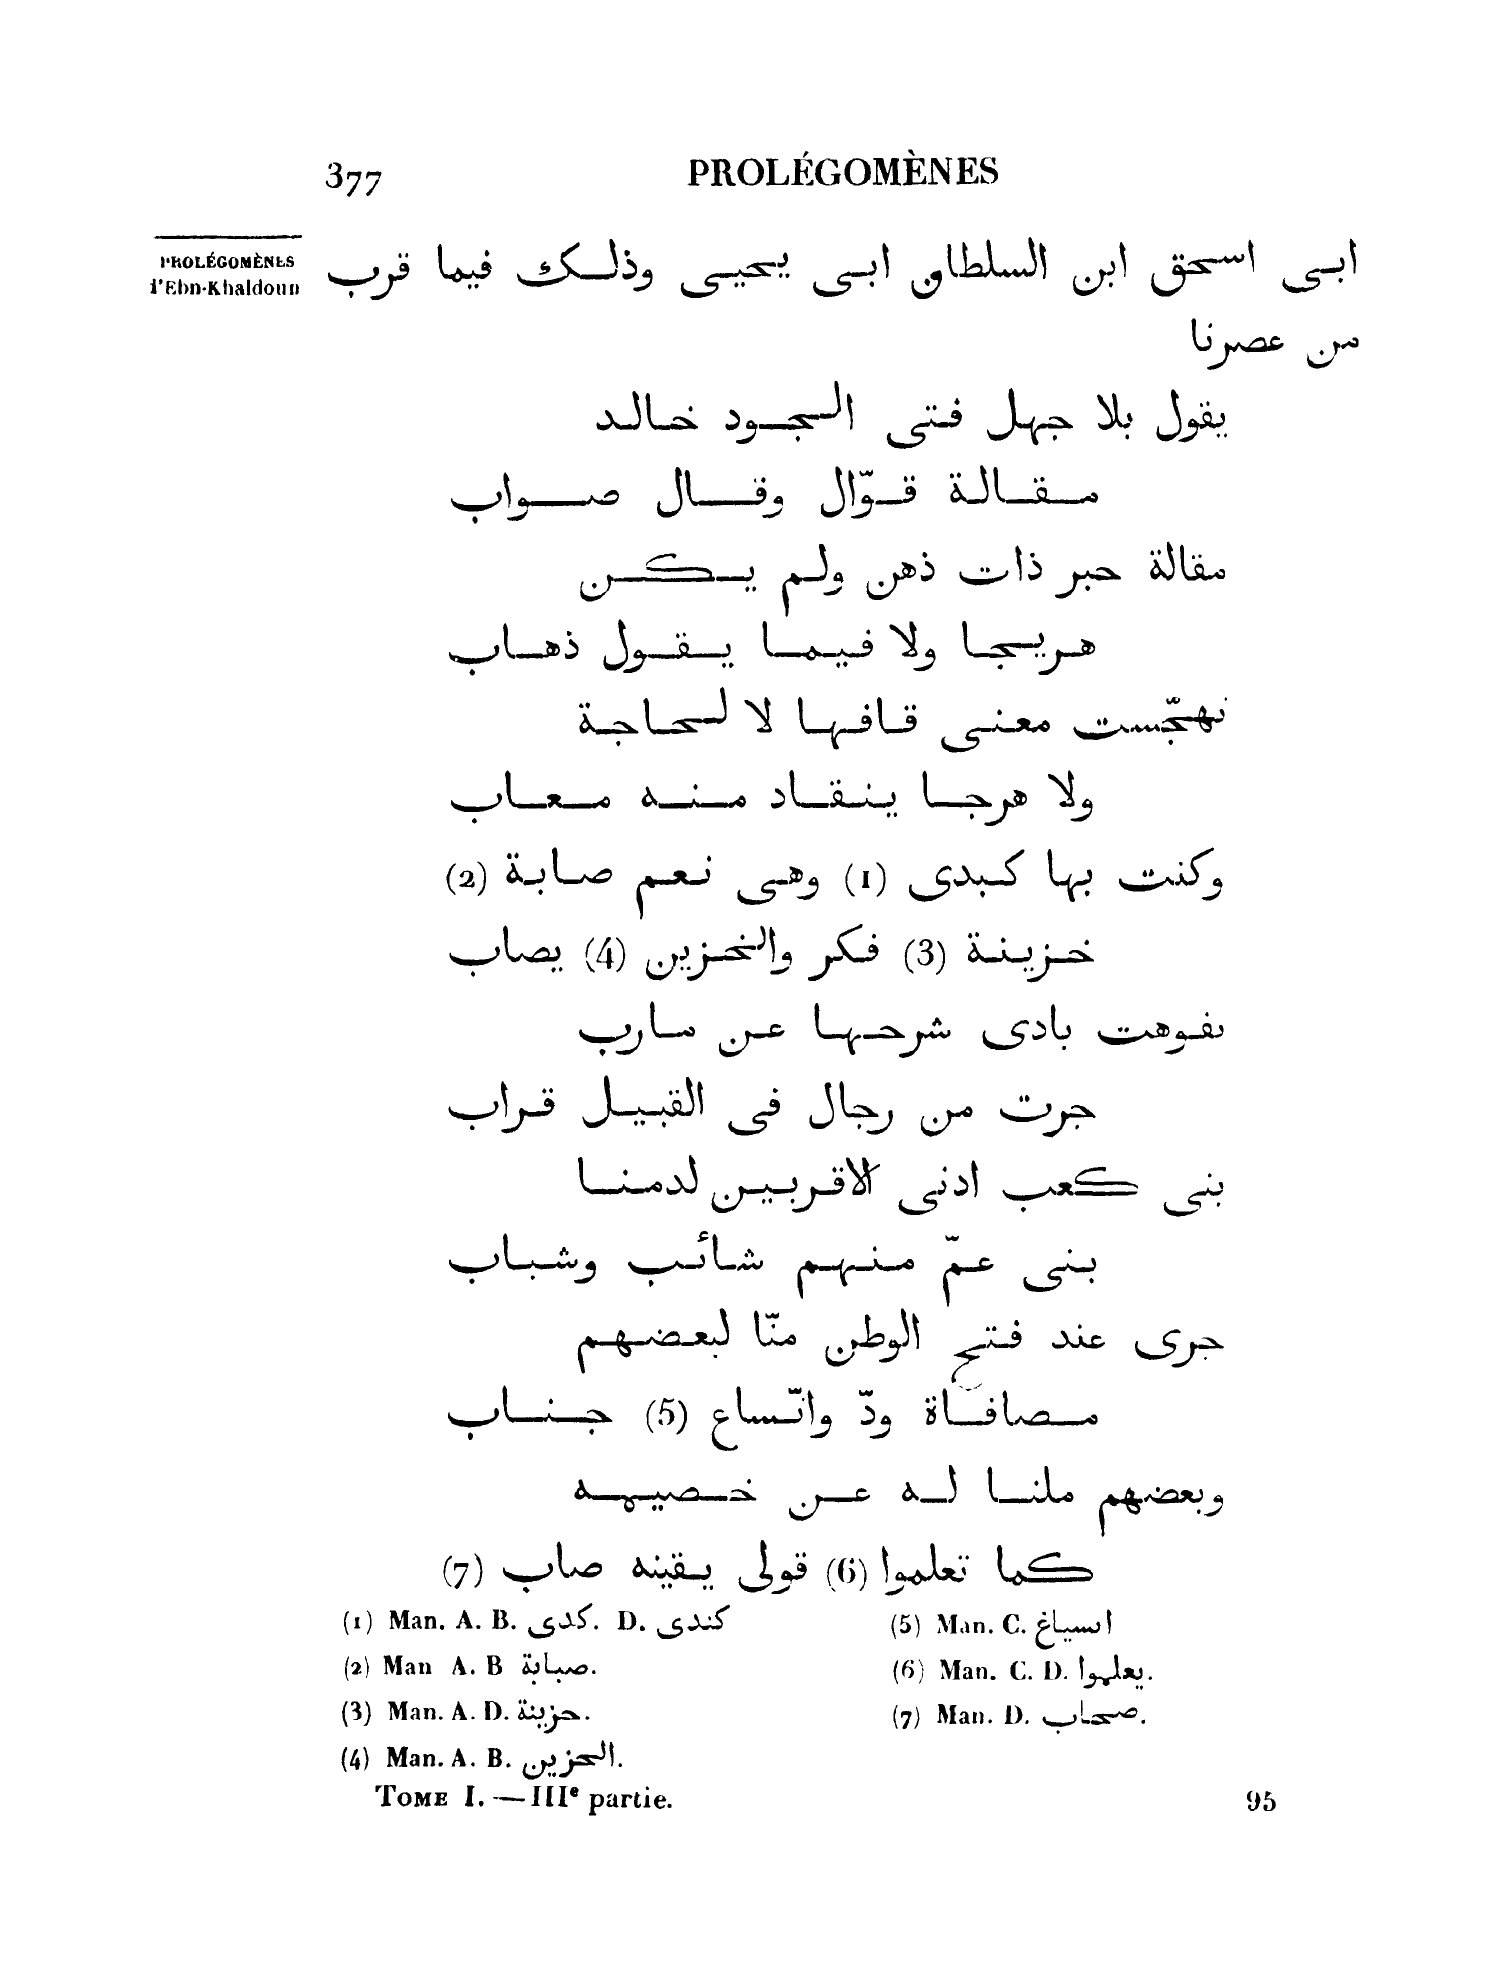 377 PROLÉGOMÈNES
PROLÉGOMÈNES
d'Ebn-Khaldoun
ابى اسحق ابن السلطان ابى يحيى وذلك فيما قرب
من عصرنا
يقول بلا جهل فتى الجود خالد
مقالة قوّال وقال صواب
مقالة حبر ذات ذهن ولم يكن
هريجا ولا فيما يقول ذهاب
تهجّست معنى قافها لا لحاجة
ولا هرجا ينقاد منه معاب
وكنت بها كبدى (1) وهى نعم صابة (2)
خزينة (3) فكر والخزين (4) يصاب
تفوهت بادى شرحها عن مارب
جرت من رجال فى القبيل قراب
بنى كعب ادنى الاقربين لدمنا
بنى عمّ منهم شائب وشباب
جرى عند فتح الوطن منّا لبعضهم
مصافاة ودّ واتّساع (5) جناب
وبعضهم ملنا له عن خصيمه
كما تعلموا (6) قولى يقينه صاب (7)
(1) Man. A. B. كدى. D. كندى
(2) Man A. B صبابة.
(3) Man. A. D. حزينة.
(4) Man. A. B. الحزين.
(5) Man. C. اسياغ
(6) Man. C. D. يعلموا.
(7) Man. D. صحاب.
TOME I. — IIIe partie. 95